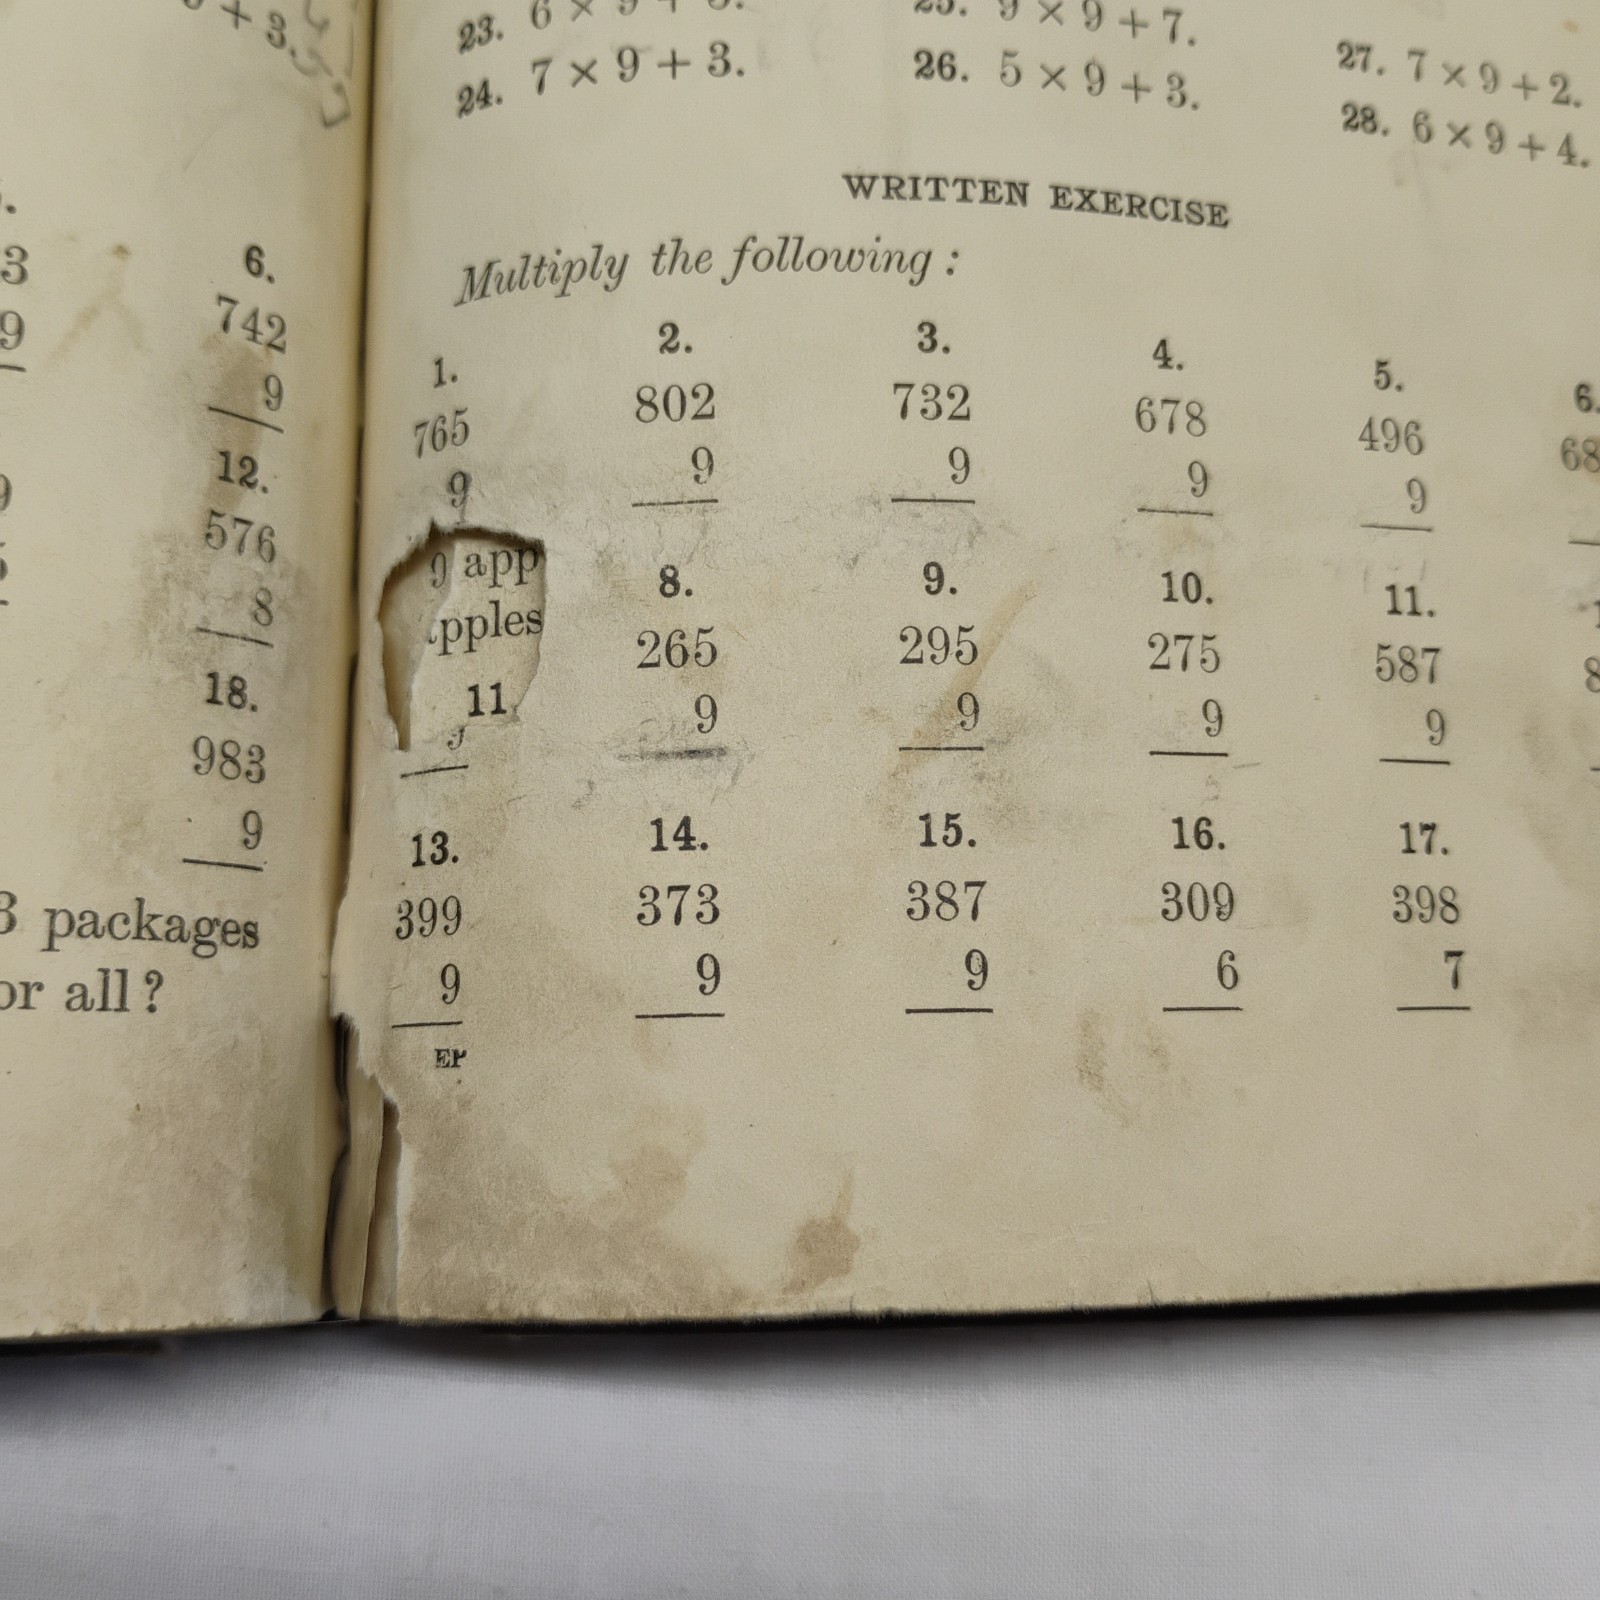 + 3.
3
9
6.
742
9
12.
9
576
8
18.
983
9
3 packages
or all?
23. 6 × 9 +
24. 7 × 9 + 3.
25. 9 × 9 + 7.
26. 5 × 9 + 3.
27. 7 × 9 + 2.
28. 6 × 9 + 4.
WRITTEN EXERCISE
Multiply the following:
1. 2. 3. 4. 5. 6.
765 802 732 678 496 68
9 9 9 9 9
9 app 8. 9. 10. 11.
pples 265 295 275 587 8
11 9 9 9 9
13. 14. 15. 16. 17.
399 373 387 309 398
9 9 9 6 7
EP